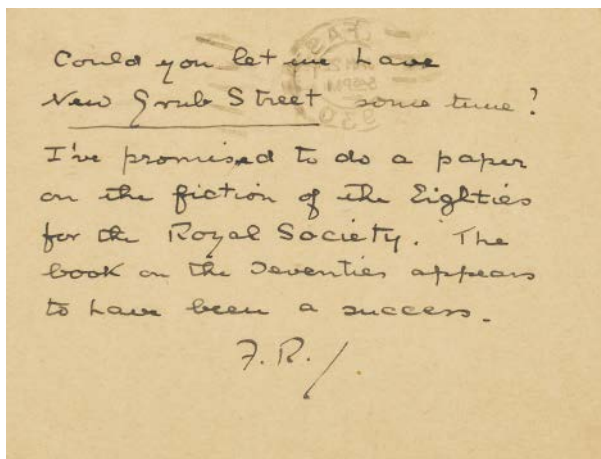 Could you let me have
New Grub Street some time?
I've promised to do a paper
on the fiction of the Eighties
for the Royal Society. The
book on the Seventies appears
to have been a success.
F.R.